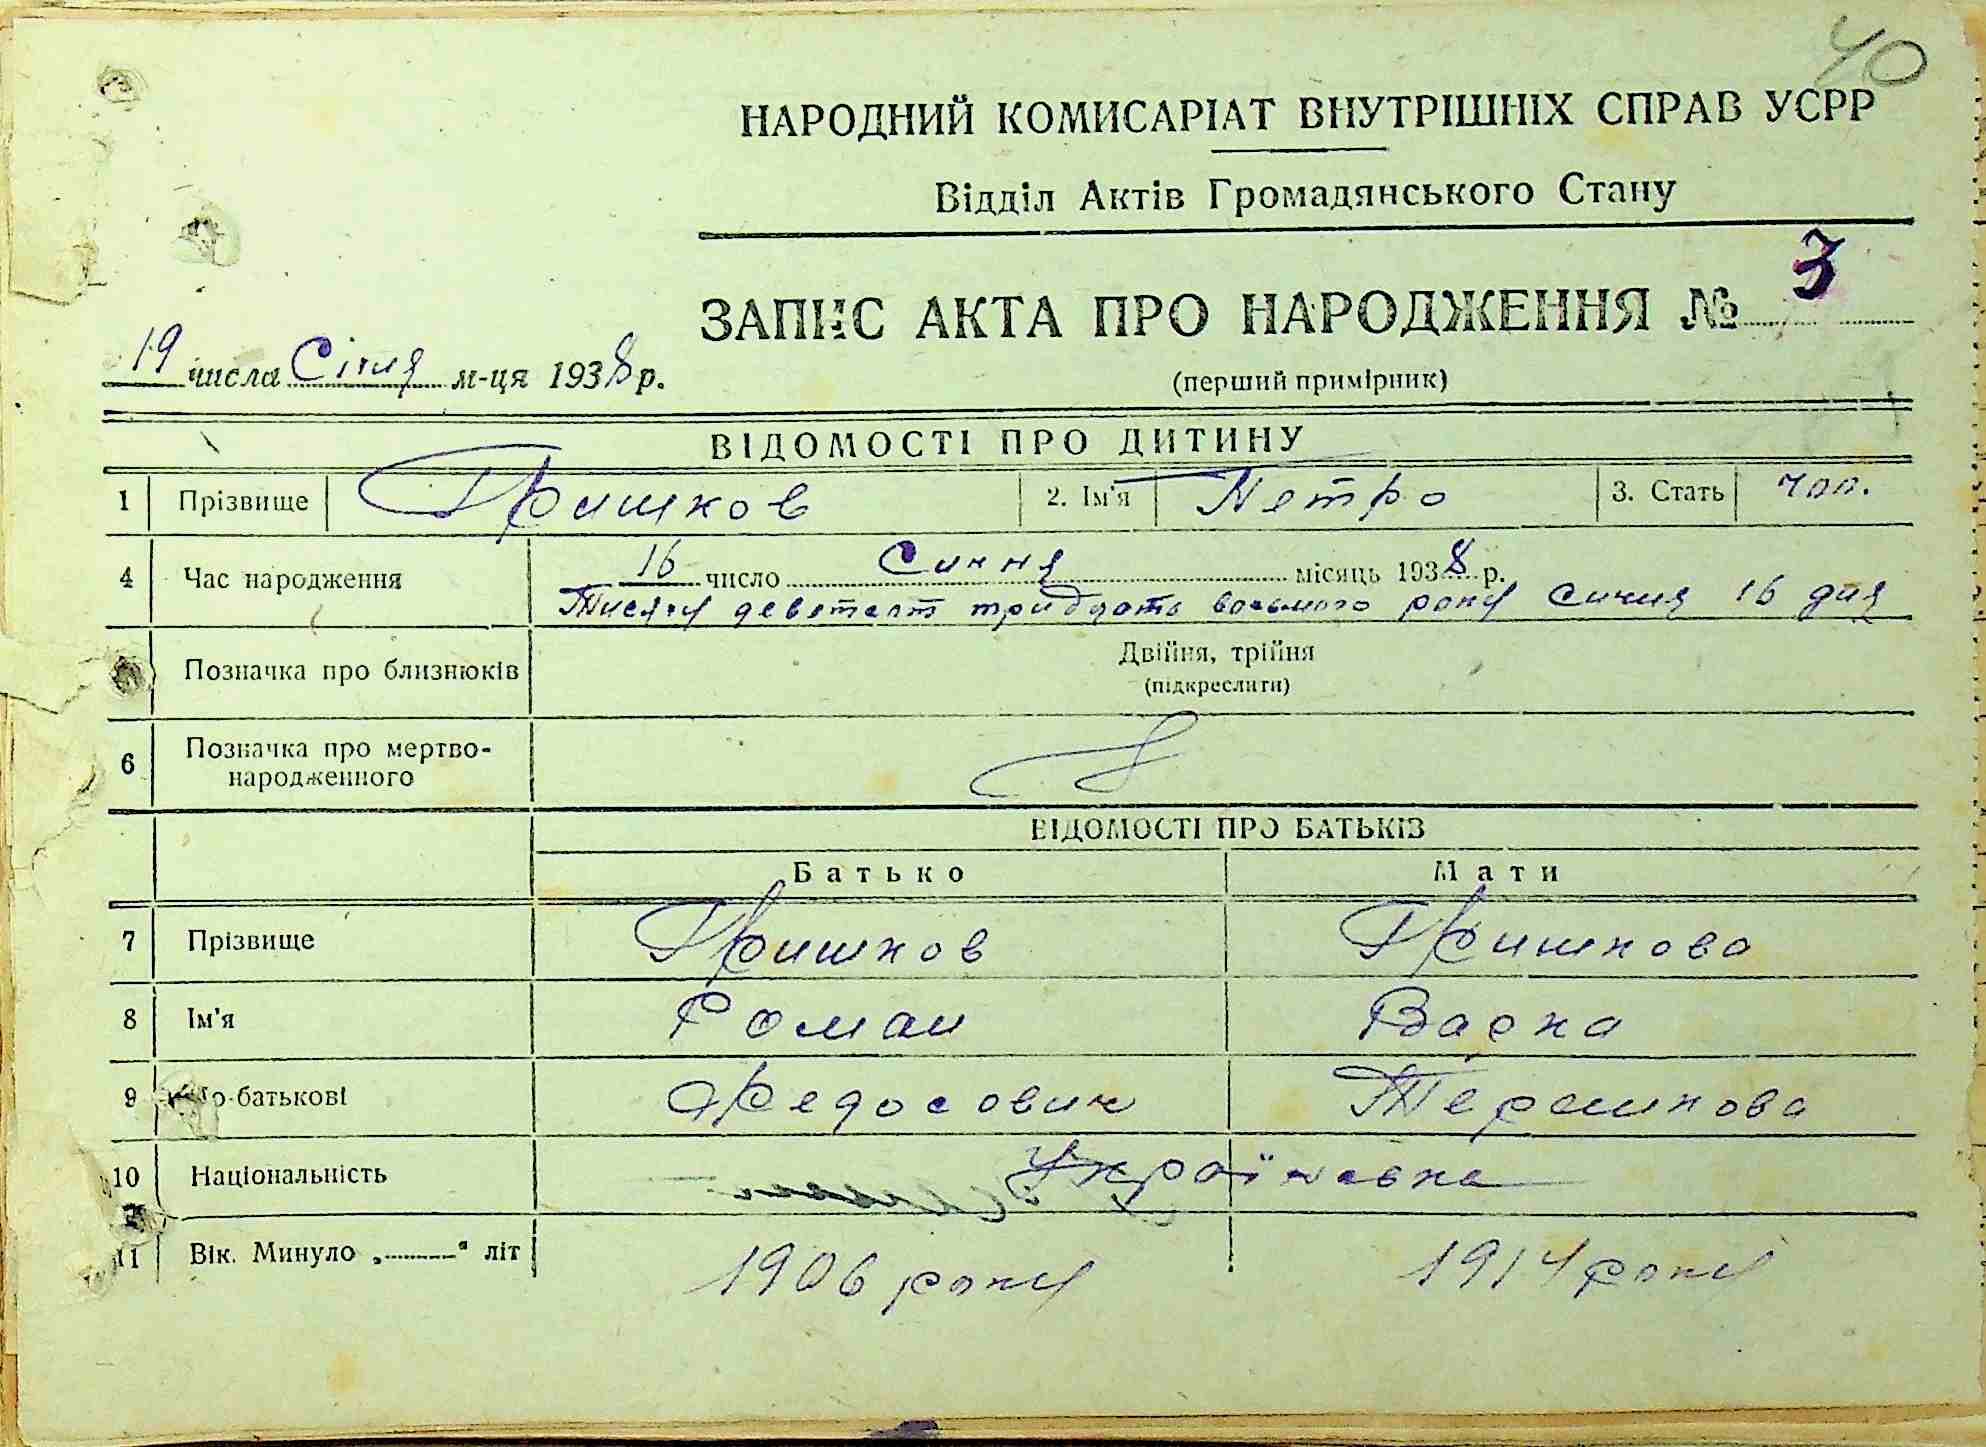 40
НАРОДНИЙ КОМИСАРІАТ ВНУТРІШНІХ СПРАВ УСРР
Відділ Актів Громадянського Стану
ЗАПИС АКТА ПРО НАРОДЖЕННЯ № 3
19 числа Січня м-ця 1938 р.
(перший примірник)
ВІДОМОСТІ ПРО ДИТИНУ
1 Прізвище Гришков 2. Ім'я Петро 3. Стать чол.
4 Час народження 16 число Сичня місяць 1938 р.
Тисячу девятсот тридцать восьмого року сичня 16 дня
Позначка про близнюків Двійня, трійня
(підкреслити)
6 Позначка про мертво-
народженного
ВІДОМОСТІ ПРО БАТЬКІВ
Батько Мати
7 Прізвище Гришков Гришкова
8 Ім'я Роман Варка
9 По-батькові Федосович Терешкова
10 Національність Українська
11 Вік. Минуло „ “ літ 1906 року 1914 року